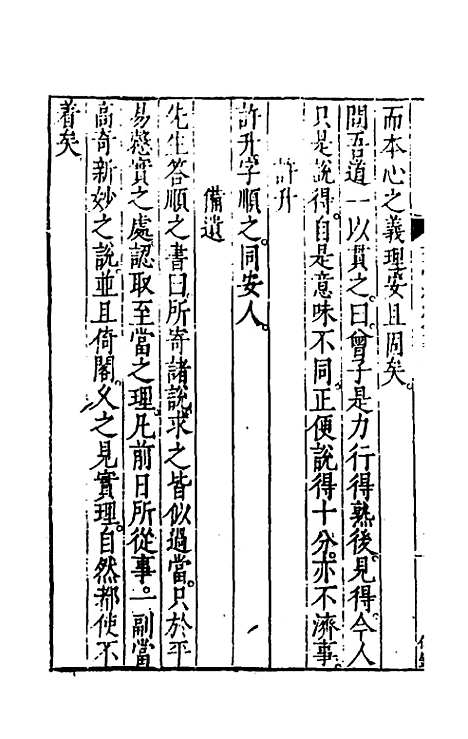 而本心之義理安且固矣。
問吾道一以貫之。曰曾子是力行得熟後見得。今人
只是說得。自是意味不同。正便說得十分。亦不濟事。
許升
許升字順之。同安人。
備遺
先生答順之書曰所寄諸說。求之皆似過當。只於平
易慤實之處。認取至當之理。凡前日所從事。一副當
高奇新妙之說。並且倚閣。久之見實理。自然都使不
着矣